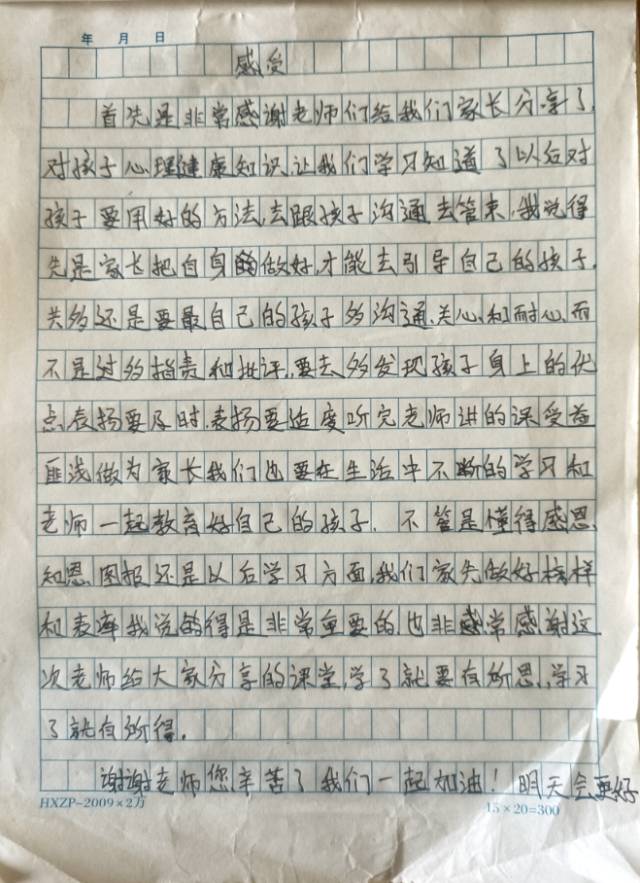 年 月 日
感受
首先是非常感谢老师们给我们家长分享了,
对孩子心理健康知识,让我们学习知道了以后对
孩子要用好的方法,去跟孩子沟通去管束,我说得
先是家长把自身的做好,才能去引导自己的孩子,
关多还是要最自己的孩子多沟通、关心、和耐心、而
不是过多指责和批评,要去多发现孩子身上的优
点,表扬要及时,表扬要适度听完老师讲的课受益
匪浅做为家长我们也要在生活中不断的学习和
老师一起教育好自己的孩子. 不管是懂得感恩,
知恩,图报还是以后学习方面,我们家先做好榜样
和表率我说的得是非常重要的,也非常感谢这
次老师给大家分享的课堂,学了就要有所思,学习
了就有所得。
谢谢老师您辛苦了我们一起加油!明天会更好
HXZP-2009×2万
15×20=300